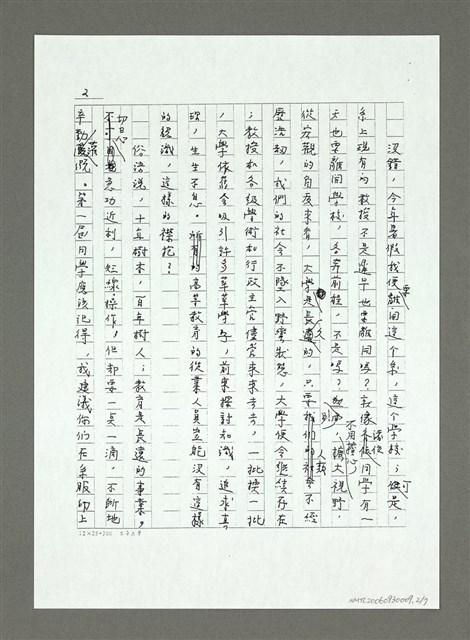 2
沒錯，今年暑假我便要離開這個系，這個學校；可是，
系上現有的教授不是遲早也要離開嗎？就像各位同學有一
天也要離開學校，各奔前程，不是嗎？然而，擴大視野，
從宏觀的角度來看，大學是長久的，只要我們的社會不經
歷浩劫，我們的社會不墮入野蠻狀態，大學便會繼續存在
；教授和各級學術和行政主官儘管來來去去，一批換一批
，大學依舊會吸引許多莘莘學子，前來探討知識，追求真
理，生生不息。所有的高等教育的從業人員豈能沒有這樣
的認識，這樣的襟抱？
俗語說，十年樹木，百年樹人；教育是長遠的事業，
不可急功近利，短線操作，但卻要一點一滴，不斷地
辛勤灌溉。第一屆同學應該記得，我建議你們在系服的上
別
不用擔心
人類
切忌
12×25=300
NMTL20060930009, 2/7